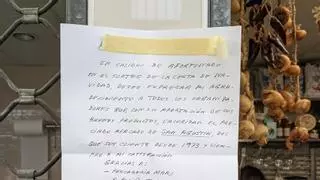 EN CALIDAD DE AFORTUNADO
EN EL SORTEO DE LA CESTA DE NA-
VIDAD, DESEO EXPRESAR MI AGRA-
DECIMIENTO A TODOS LOS
QUE CON SU APORTACIÓN DE SUS
BUENOS PRODUCTOS, EL PRE-
CIADO MERCADO DE SAN AGUSTIN, DEL
QUE SOY CLIENTE DESDE 1973 Y SIEM-
PRE A MI SATISFACCIÓN
GRACIAS A:
- PESCADERÍA MARI